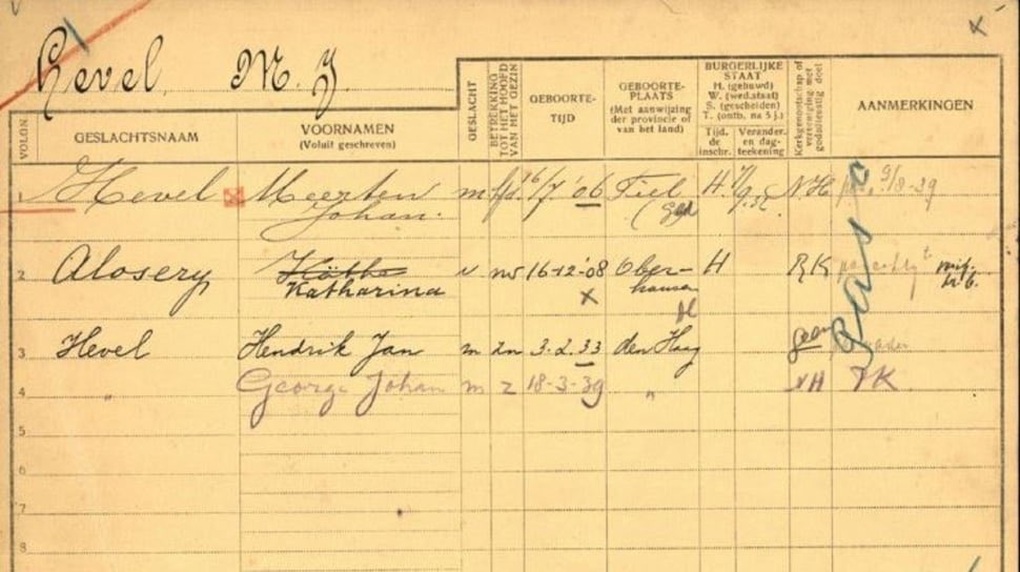 Hevel, M. J.
VOLGN.
GESLACHTSNAAM
VOORNAMEN
(Voluit geschreven)
GESLACHT
BETREKKING TOT HET HOOFD VAN HET GEZIN
GEBOORTE-
TIJD
GEBOORTE-
PLAATS
(Met aanwijzing
der provincie of
van het land)
BURGERLIJKE
STAAT
H. (gehuwd)
W. (wed.staat)
S. (gescheiden)
T. (ontb. na 5 j.)
Tijd.
de
inschr.
Verander.
en dag-
teekening
Kerkgenootschap of
vereeniging met
godsdienstig doel
AANMERKINGEN
1 Hevel Meerten m hfd. 16/7 '06 Tiel H NH 9/8-39
Johan. (Gld
2 Alosery Käthe v 16-12-'08 Ober- H RK
Katharina x hausen
Dl
3 Hevel Hendrik Jan m zn 3.2.33 den Haag geen
4 " George Johan m z 18-3-39 " NH VK
5
6
7
8